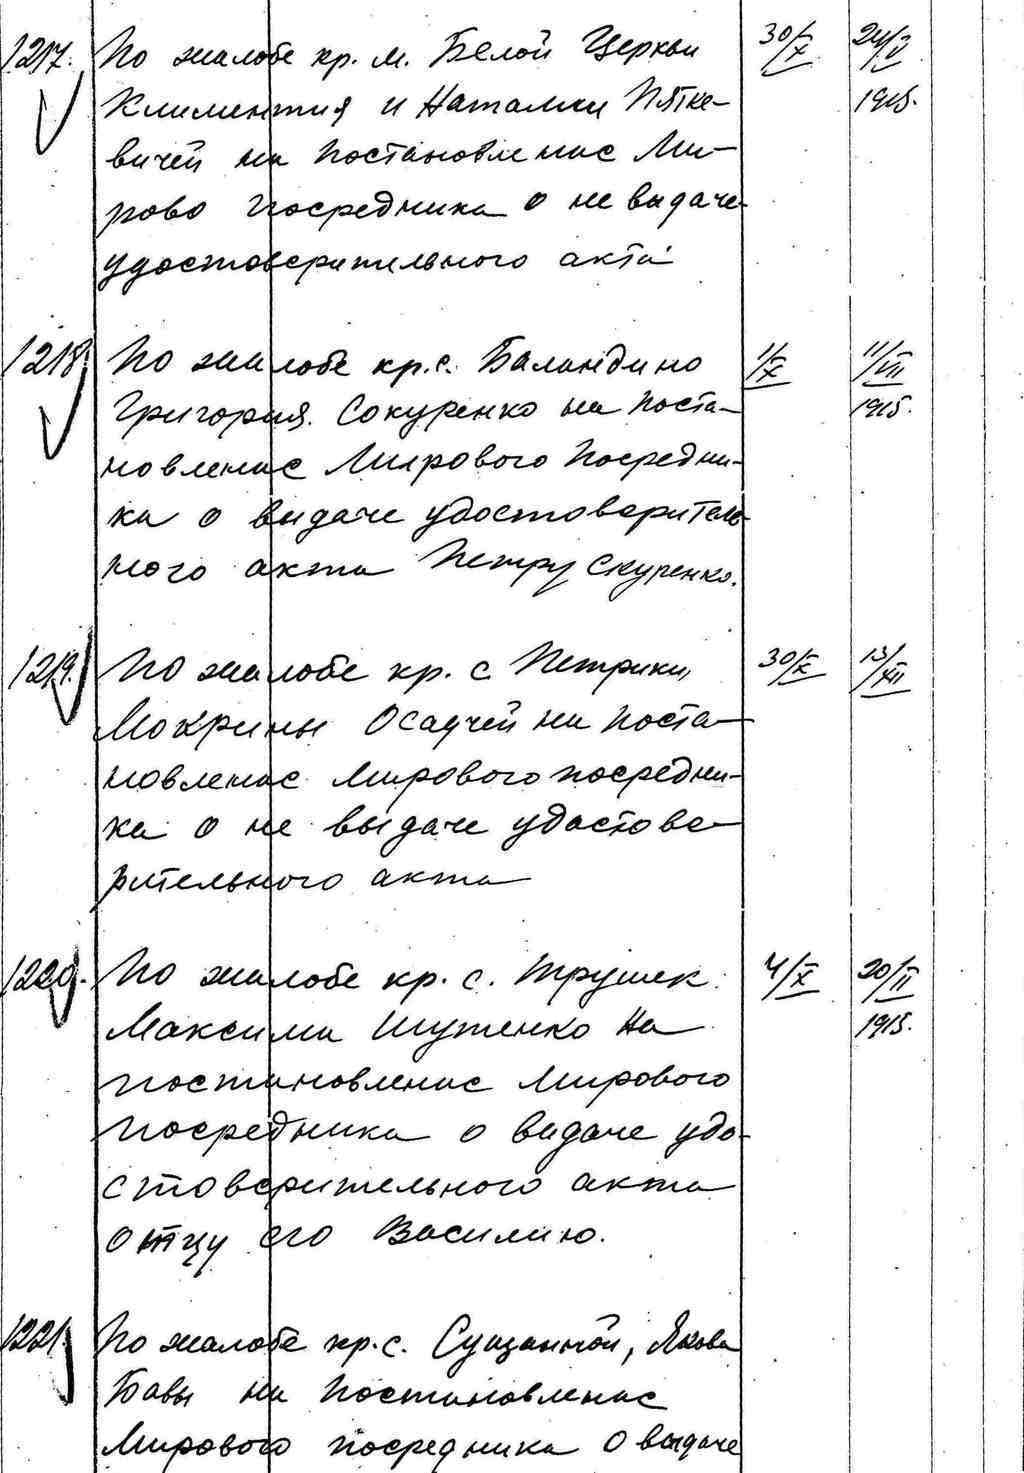 1217. По жалобе кр. м. Белой Церкви 30/X 24/V
Климентия и Наталии Пятке- 1915.
вичей на постановление Ми-
рово посредника о не выдаче
удостоверительного акта
1218. По жалобе кр. с. Баландино 1/X 11/VII
Григория. Сокуренко на поста- 1915.
новление Мирового Посредни-
ка о выдаче удостоверитель-
ного акта Петру Скуренко.
1219. По жалобе кр. с Петрики, 30/X 13/XII
Мокрины Осаучей на поста-
новление мирового посредни-
ка о не выдаче удостове-
рительного акта
1220. По жалобе кр. с. Трушек 4/X 20/II
Максима Шутенко на 1915.
постановление мирового
посредника о видаче удо-
стоверительного акта
отцу его Василию.
1221. По жалобе кр. с. Сущанкой, Якова
Бавы на постановление
Мирового посредника о выдаче